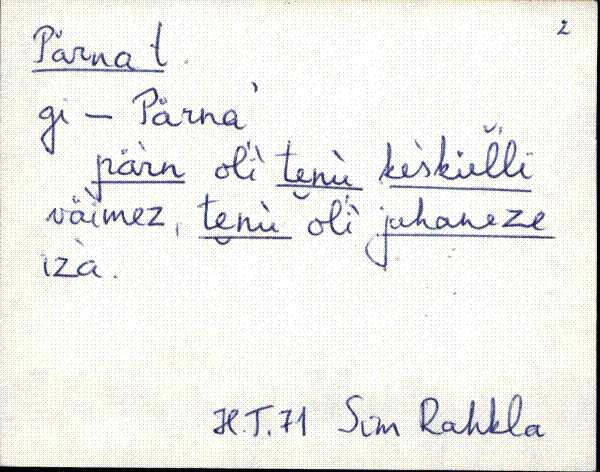 2
Pärna t.
gi – Pärna'
pärn oli tenù kèskülli
väimez, tenù oli juhaneze
izà.
H.T. 71 Sim Rahkla